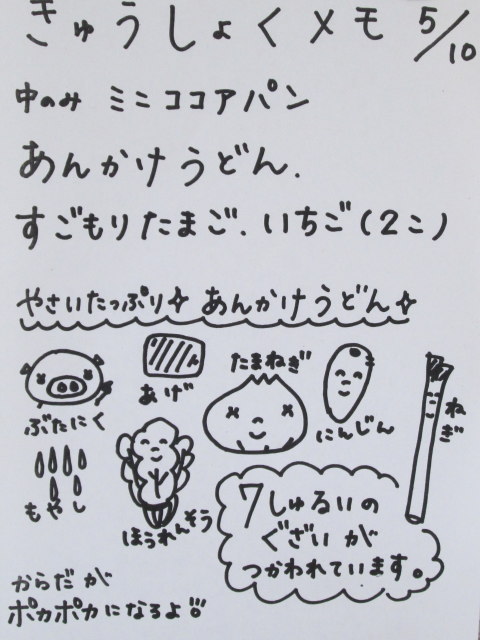 きゅうしょくメモ 5/10
中のみ ミニココアパン
あんかけうどん.
すごもりたまご. いちご(2こ)
やさいたっぷり✧ あんかけうどん✧
ぶたにく
あげ
たまねぎ
にんじん
ねぎ
もやし
ほうれんそう
7しゅるいの
ぐざいが
つかわれています。
からだが
ポカポカになるよ!!!